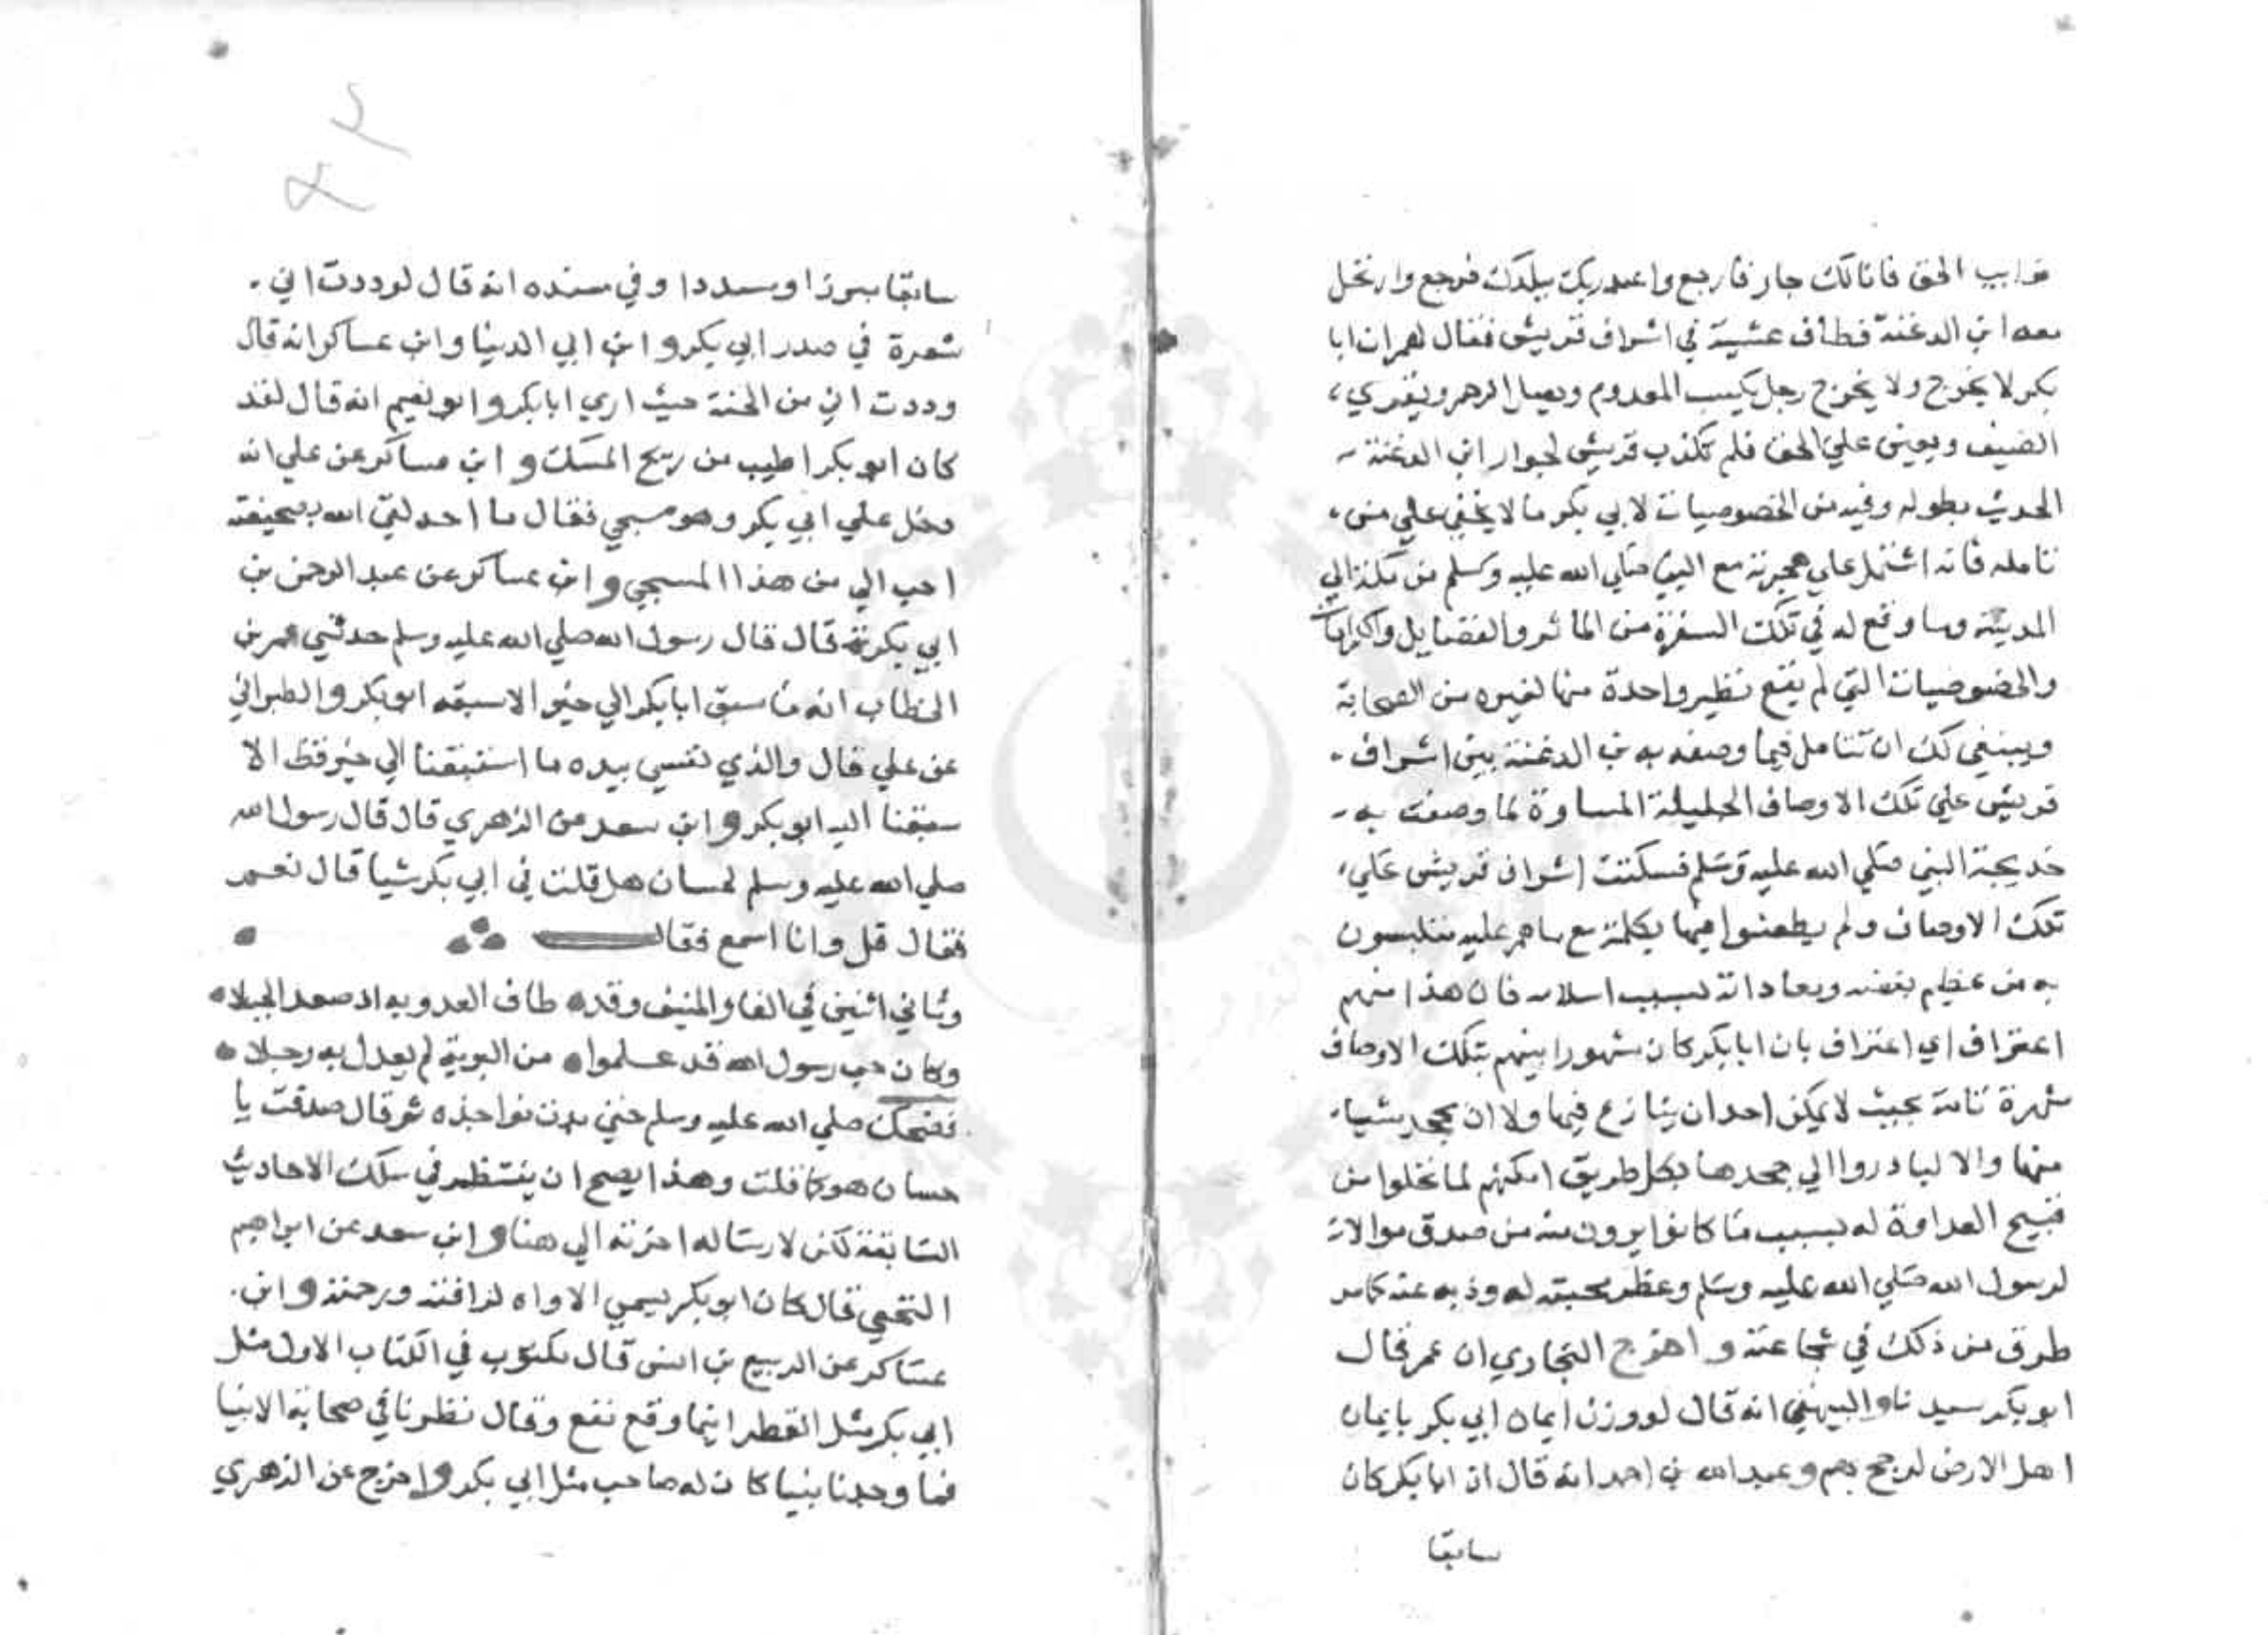 نوايب الحق فانا لك جار فارجع واعبد ربك ببلدك فرجع وارتحل
معه ابن الدغنة فطاف عشية في اشراف قريش فقال لهم ان ابا
بكر لا يخرج ولا يخرج رجل يكسب المعدوم ويصل الرحم ويقري
الضيف ويعين علي الحق فلم تكذب قريش لجوار ابن الدغنة
الحديث بطوله وفيه من الخصوصيات لابي بكر ما لا يخفي علي من
تامله فانه اشتمل علي هجرته مع النبي صلي الله عليه وسلم من مكة الي
المدينة وما وقع له في تلك السفرة من الماثر والفضايل والكرامات
والخصوصيات التي لم يقع نظير واحدة منها لغيره من الصحابة
وينبغي لك ان تتامل فيما وصفه به بن الدغنة بين اشراف
قريش علي تلك الاوصاف الجليلة المساوة لما وصفت به
خديجة النبي صلي الله عليه وسلم فسكتت اشراف قريش علي
تلك الاوصاف ولم يطعنوا فيها بكلمة مع ما هم عليه متلبسون
به من عظيم بغضه ومعاداته بسبب اسلامه فان هذا منهم
اعتراف اي اعتراف بان ابا بكر كان مشهورا بينهم بتلك الاوصاف
شهرة تامة بحيث لا يمكن احد ان ينازع فيها ولا ان يجحد شيا
منها والا لبادروا الي جحدها بكل طريق امكنهم لما تحلوا من
قبيح العداوة له بسبب ما كانوا يرون منه من صدق موالاته
لرسول الله صلي الله عليه وسلم وعظم محبته له وذبه عنه كما مر
طرق من ذلك في شجاعته واخرج البخاري ان عمر قال
ابو بكر سيدنا والبيهقي انه قال لو وزن ايمان ابي بكر بايمان
اهل الارض لرجح بهم وعبد الله بن احمد انه قال ان ابا بكر كان
سابقا
سابقا مبرزا ومسددا وفي مسنده انه قال لوددت اني
شعرة في صدر ابي بكر وابن ابي الدنيا وابن عساكر انه قال
وددت اني من الجنة حيث اري ابا بكر وابو نعيم انه قال لقد
كان ابو بكر اطيب من ريح المسك وابن عساكر عن علي انه
دخل علي ابي بكر وهو مسجي فقال ما احد لقي الله بصحيفته
احب الي من هذا المسجي وابن عساكر عن عبد الرحمن بن
ابي بكر قال قال رسول الله صلي الله عليه وسلم حدثني عمر بن
الخطاب انه ما سبق ابا بكر الي خير الا سبقه ابو بكر والطبراني
عن علي قال والذي نفسي بيده ما استبقنا الي خير قط الا
سبقنا اليه ابو بكر وابن سعد عن الزهري قال قال رسول الله
صلي الله عليه وسلم لحسان هل قلت في ابي بكر شيا قال نعم
فقال قل وانا اسمع فقال
وثاني اثنين في الغار المنيف وقد طاف العدو به اذ صعد الجبلا
وكان حب رسول الله قد علموا من البرية لم يعدل به رجلا
فضحك صلي الله عليه وسلم حتي بدت نواجذه ثم قال صدقت يا
حسان هو كما قلت وهذا يصح ان ينتظم في سلك الاحاديث
السابقة لكن لارساله اخرته الي هنا وابن سعد عن ابراهيم
النخعي قال كان ابو بكر يسمي الاواه لرافته ورحمته وابن
عساكر عن الربيع بن انس قال مكتوب في الكتاب الاول مثل
ابي بكر مثل القطر اينما وقع نفع وقال نظرنا في صحابة الانبيا
فما وجدنا نبيا كان له صاحب مثل ابي بكر واخرج عن الزهري